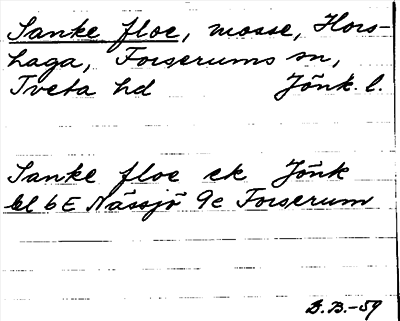 Sanke floe, mosse, Hors-
haga, Forserums sn,
Tveta hd Jönk. l.
Sanke floe ek Jönk
bl 6 E Nässjö 9e Forserum
B.B.-59